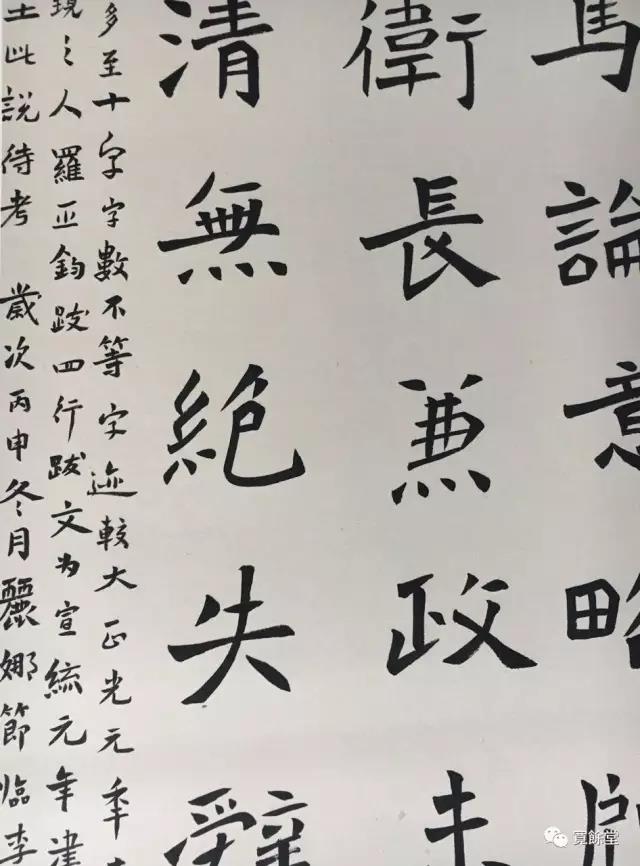 馬論意略
衛長兼政未
清無絕失辭
多至十字字數不等字迹較大正光元年
現之人羅正鈞跋四行跋文为宣統元年
此說待考 歲次丙申冬月麗娜節臨李
寬餘堂